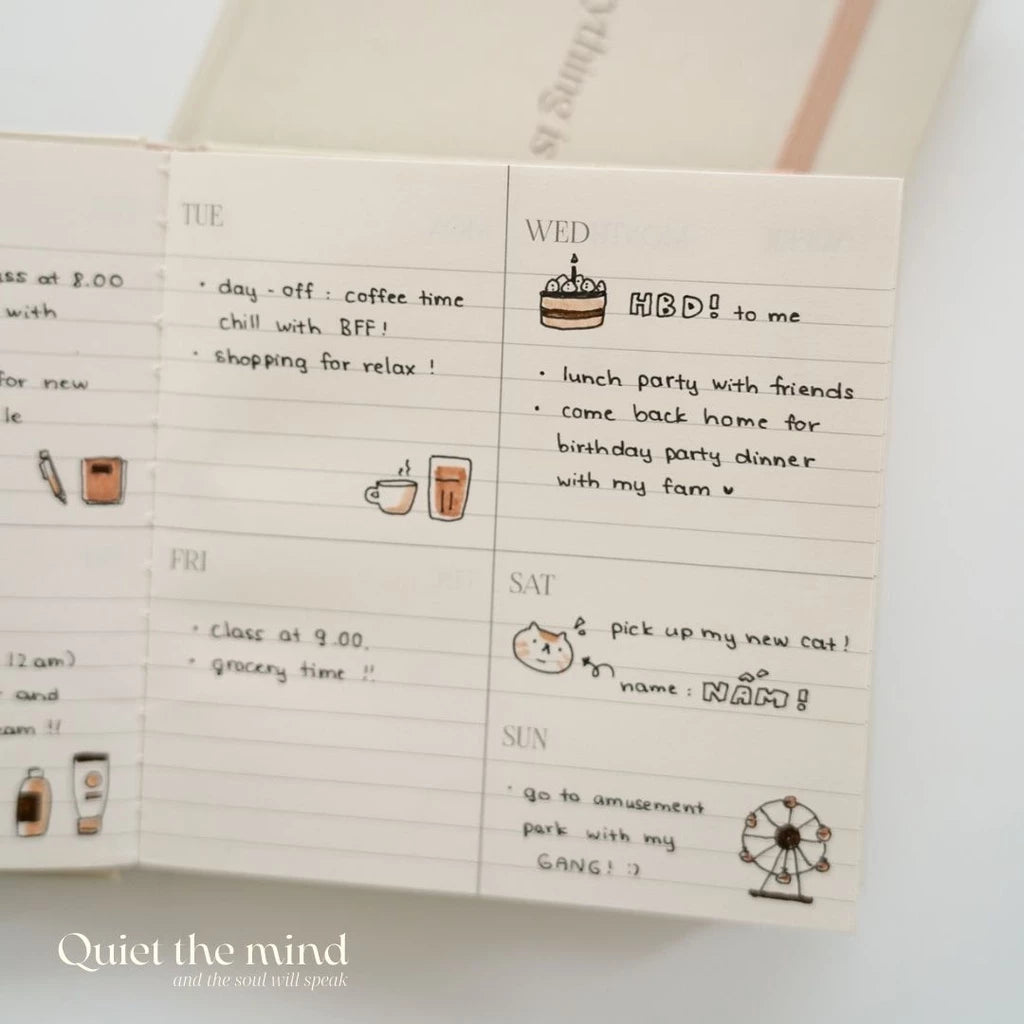 ything is
ss at 8.00
with
for new
le
TUE
• day - off : coffee time
chill with BFF!
• shopping for relax !
WED
HBD! to me
• lunch party with friends
• come back home for
birthday party dinner
with my fam ♥
12 am)
and
am !!
FRI
• class at 9.00.
• grocery time !!
SAT
pick up my new cat!
name : NAM!
SUN
• go to amusement
park with my
GANG! :)
Quiet the mind
and the soul will speak